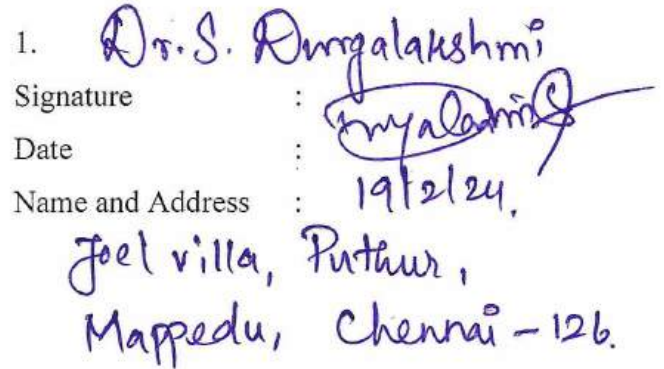 1. Dr. S. Durgalakshmi
Signature :
Date :
19/2/24.
Name and Address :
Joel villa, Puthur,
Mappedu, Chennai - 126.